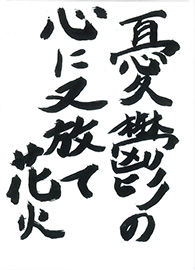 憂鬱の
心に又放て
花火